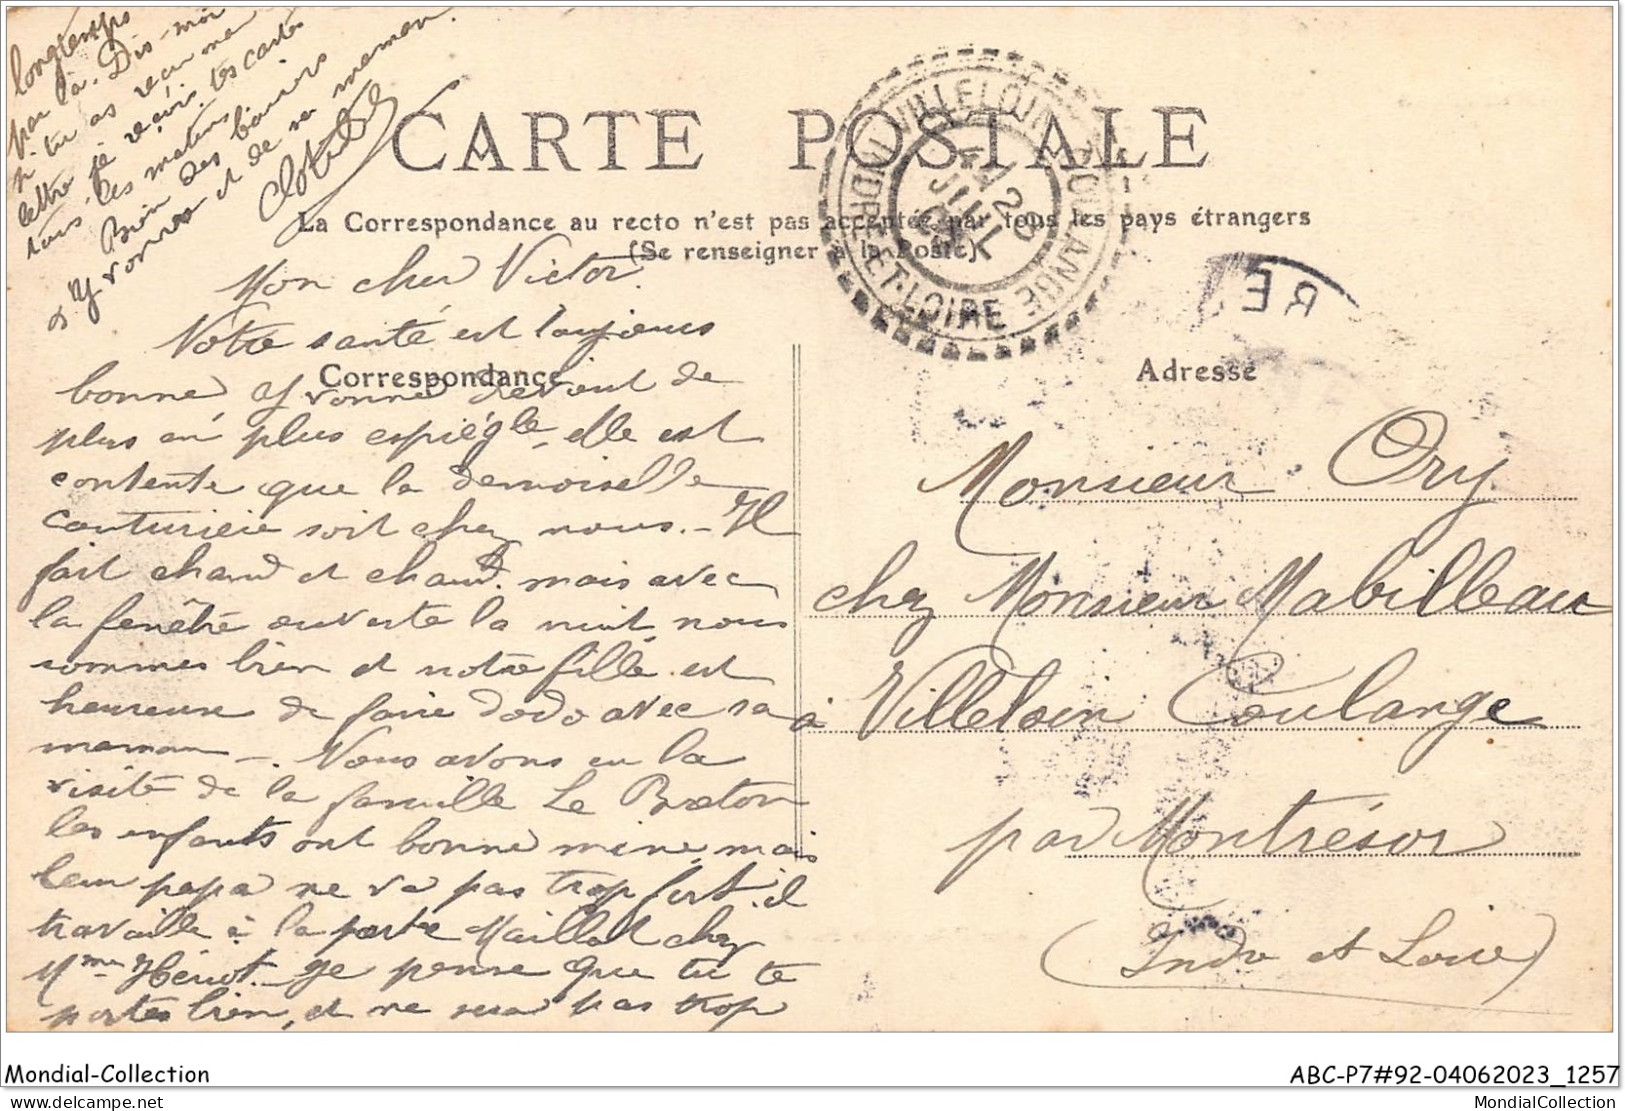 CARTE POSTALE
La Correspondance au recto n'est pas acceptée par tous les pays étrangers
(Se renseigner à la Poste)
VILLELOIN-COULANGÉ
INDRE-ET-LOIRE
20
JUIL
RE
Correspondance
Adresse
Mon cher Victor.
Notre santé est toujours
bonne, Yvonne devient de
plus en plus espiègle, elle est
contente que la demoiselle
couturière soit chez nous. - Il
fait chaud et chaud. mais avec
la fenêtre ouverte la nuit nous
sommes bien et notre fille est
heureuse de faire dodo avec sa
maman -. Nous avons eu la
visite de la famille Le Breton
les enfants ont bonne mine, mais
leur papa ne va pas trop fort. il
travaille à la porte Maillot chez
Mme Hériot. Je pense que tu te
portes bien, et ne sera pas trop
longtemps
par là. Dis-moi
si tu as reçu ma
lettre je reçois tes cartes
tous les matins
Bien des baisers
d'Yvonne et de sa maman.
Clotilde
Monsieur Ory
chez Monsieur Mabilleau
à Villeloin Coulange
par Montrésor
(Indre et Loire)
Mondial-Collection
ABC-P7#92-04062023_1257
delcampe.net
MondialCollection